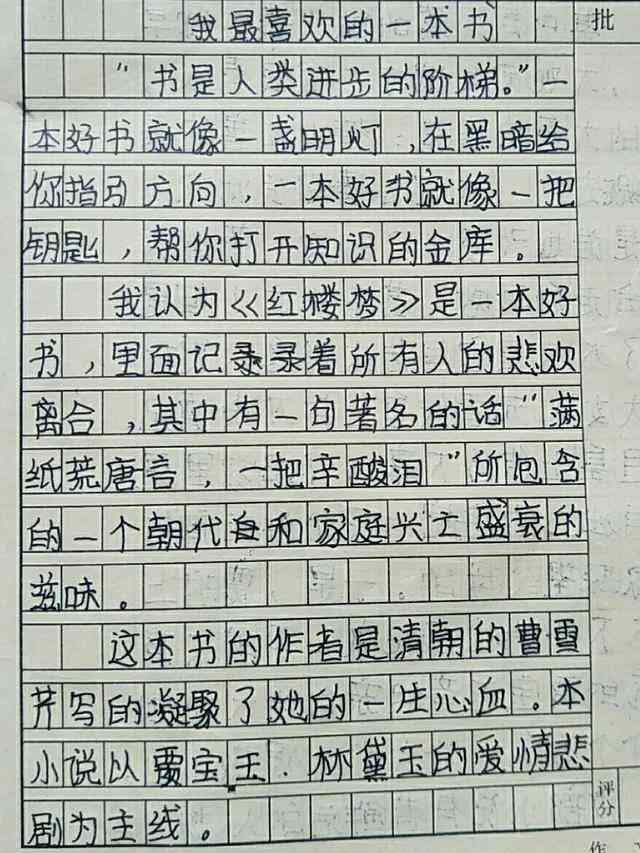 批
我最喜欢的一本书
“书是人类进步的阶梯。”一
本好书就像一盏明灯,在黑暗给
你指引方向,一本好书就像一把
钥匙,帮你打开知识的金库。
我认为《红楼梦》是一本好
书,里面记录着所有人的悲欢
离合,其中有一句著名的话“满
纸荒唐言,一把辛酸泪”所包含
的一个朝代和家庭兴亡盛衰的
滋味。
这本书的作者是清朝的曹雪
芹写的凝聚了她的一生心血。本
小说以贾宝玉.林黛玉的爱情悲
剧为主线。
评分
作